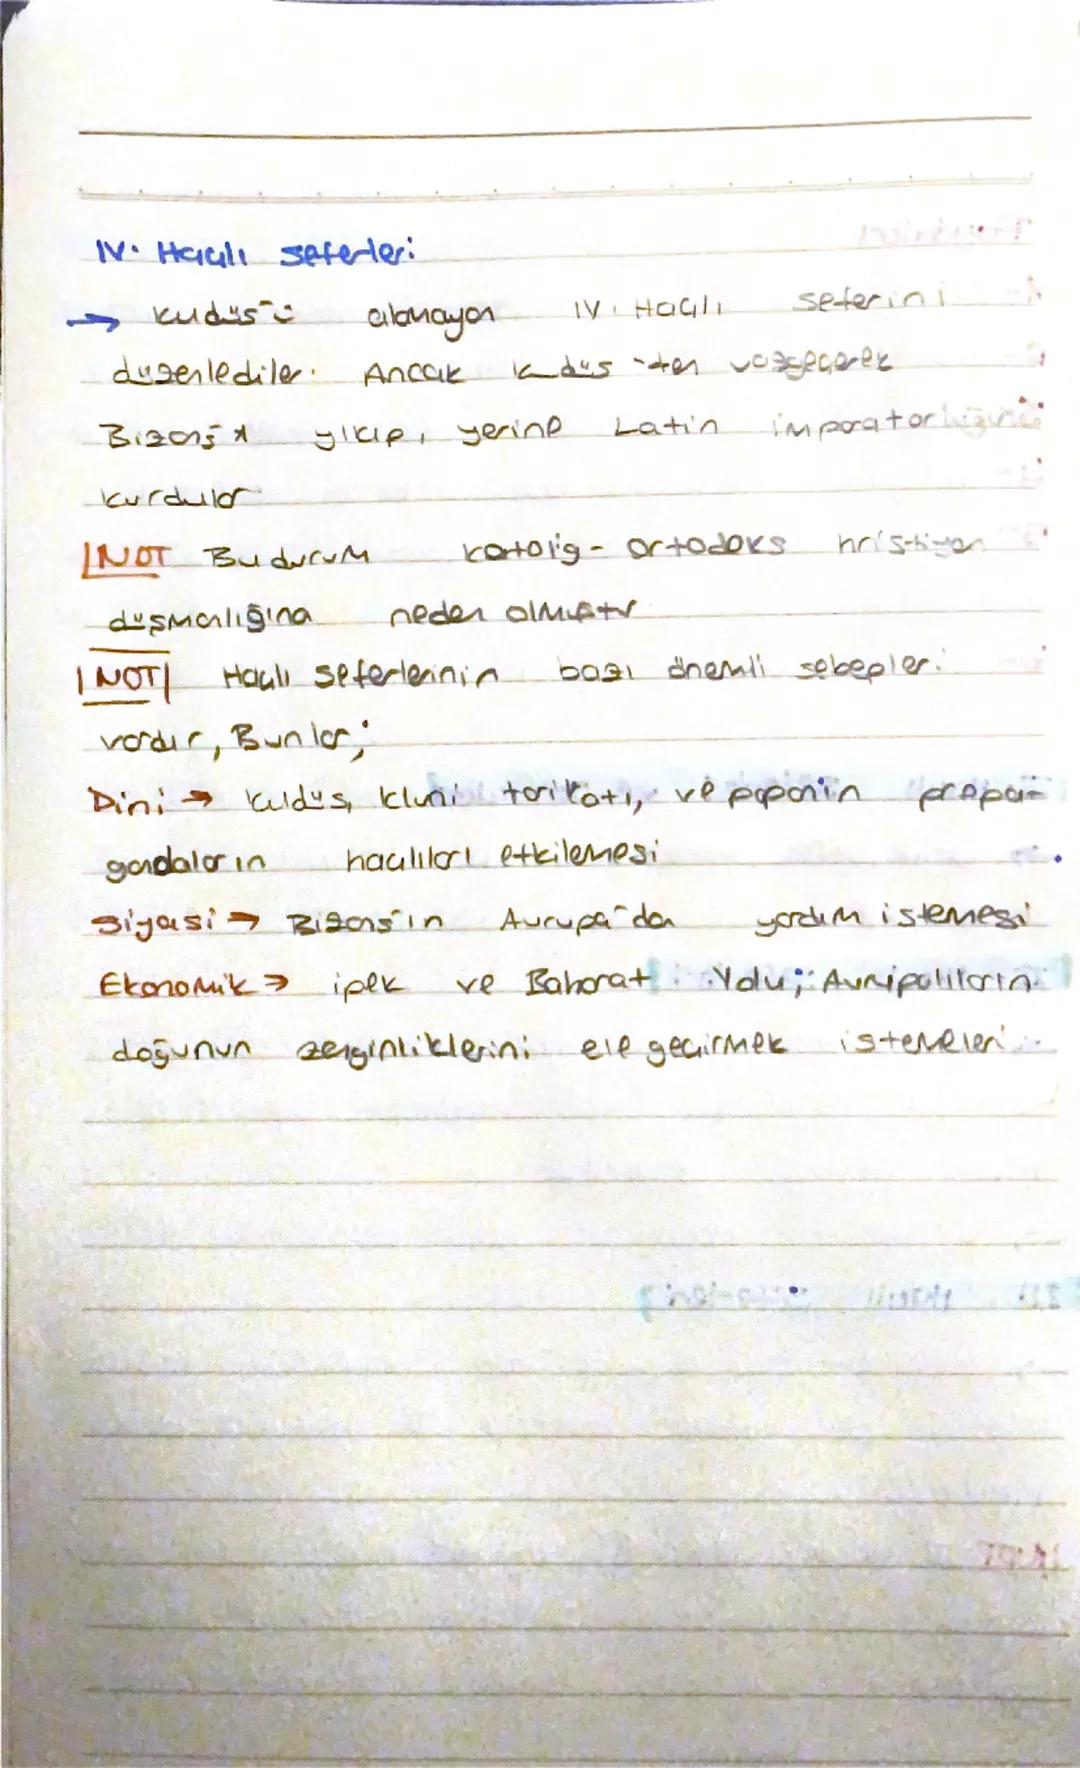 IV. Haçlı seferleri
→ Kudüs'ü alamayan IV. Haçlı seferini
düzenlediler. Ancak Kudüs'ten vazgeçerek
Bizans'ı yıkıp, yerine Latin imparatorluğunu
kurdular
NOT Bu durum katolig - ortodoks hristiyan
düşmanlığına neden olmuştur
NOT Haçlı seferlerinin bazı önemli sebepleri
vardır, Bunlar;
Dini → Kudüs, kluni tarikatı, ve papanın propa-
gandaların haçlıları etkilemesi
Siyasi → Bizans'ın Avrupa'dan yardım istemesi
Ekonomik → ipek ve Baharat Yolu; Avrupalıların
doğunun zenginliklerini ele geçirmek istemeleri